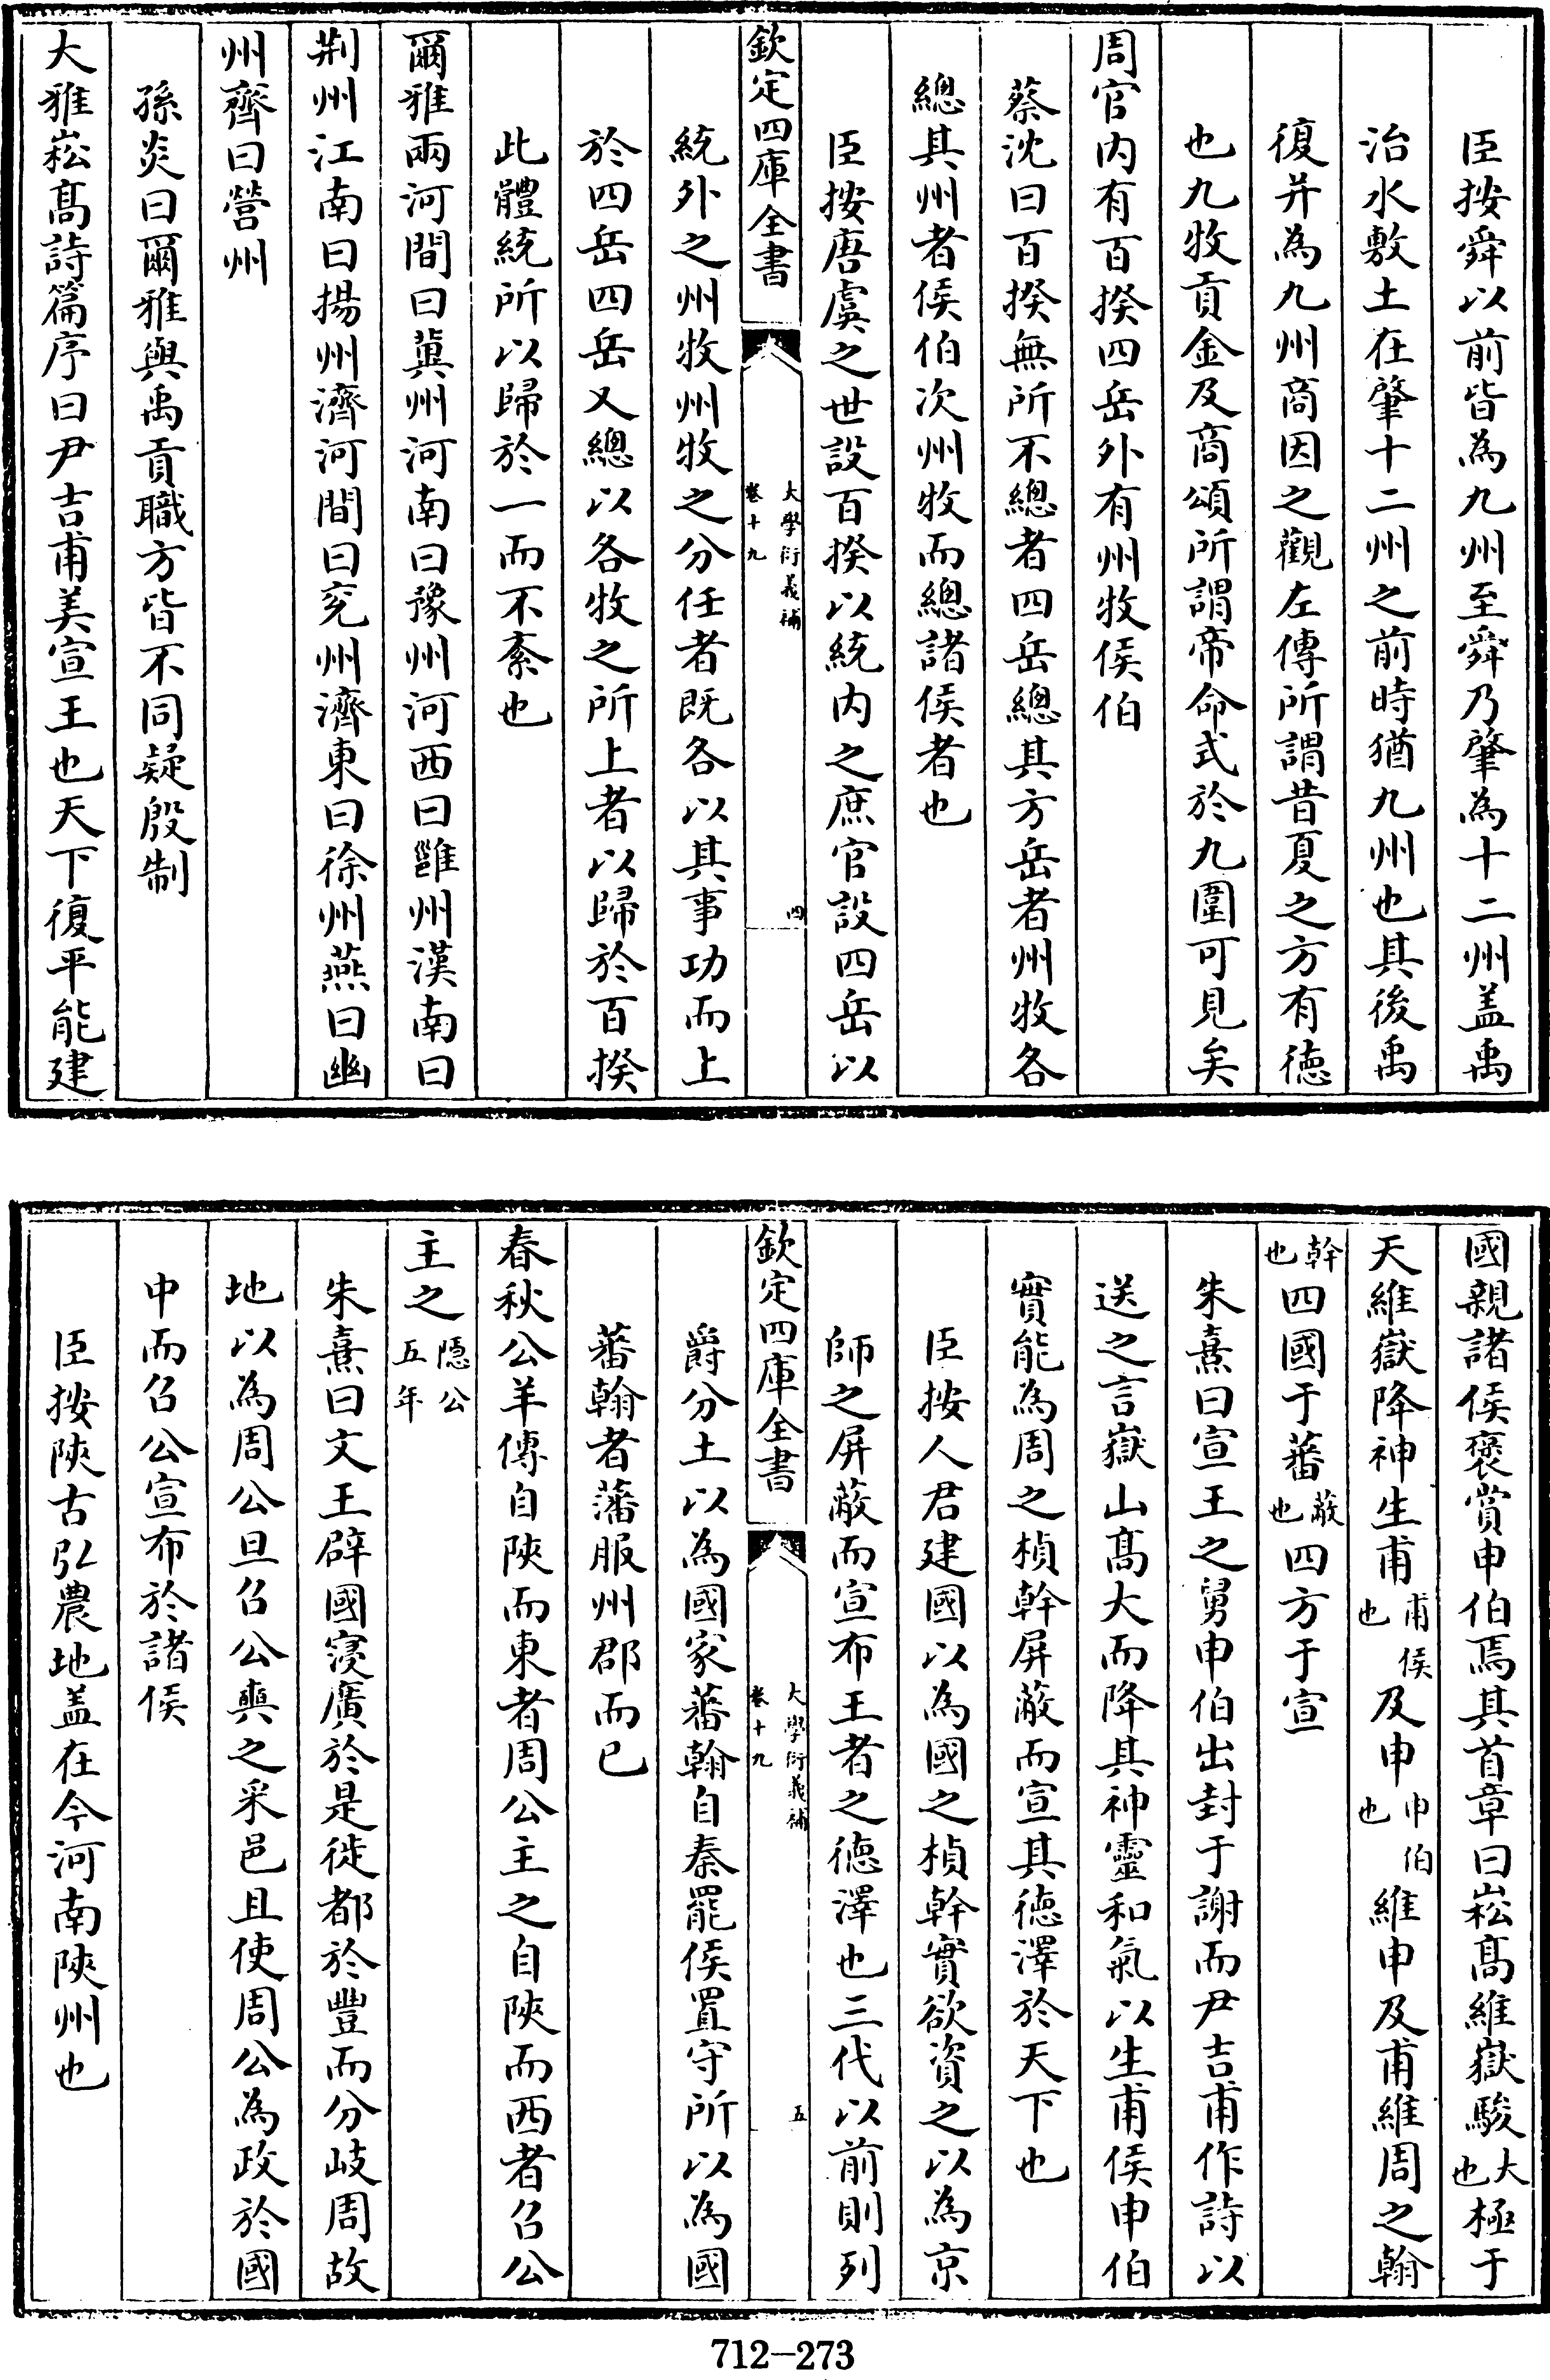 臣按舜以前皆為九州至舜乃肇為十二州盖禹
治水敷土在肇十二州之前時猶九州也其後禹
復并為九州商因之觀左傳所謂昔夏之方有徳
也九牧貢金及商頌所謂帝命式於九圍可見矣
周官内有百揆四岳外有州牧侯伯
蔡沈曰百揆無所不總者四岳總其方岳者州牧各
總其州者侯伯次州牧而總諸侯者也
臣按唐虞之世設百揆以統内之庶官設四岳以
欽定四庫全書
大學衍義補
卷十九
四
統外之州牧州牧之分任者既各以其事功而上
於四岳四岳又總以各牧之所上者以歸於百揆
此體統所以歸於一而不紊也
爾雅兩河間曰冀州河南曰豫州河西曰雝州漢南曰
荆州江南曰揚州濟河間曰兖州濟東曰徐州燕曰幽
州齊曰營州
孫炎曰爾雅與禹貢職方皆不同疑殷制
大雅崧髙詩篇序曰尹吉甫美宣王也天下復平能建
國親諸侯褒賞申伯焉其首章曰崧髙維嶽駿大也極于
天維嶽降神生甫甫侯也及申申伯也維申及甫維周之翰
幹也四國于蕃蔽也四方于宣
朱熹曰宣王之舅申伯出封于謝而尹吉甫作詩以
送之言嶽山髙大而降其神靈和氣以生甫侯申伯
實能為周之楨幹屏蔽而宣其徳澤於天下也
臣按人君建國以為國之楨幹實欲資之以為京
師之屏蔽而宣布王者之徳澤也三代以前則列
欽定四庫全書
大學衍義補
卷十九
五
爵分土以為國家蕃翰自秦罷侯置守所以為國
蕃翰者藩服州郡而已
春秋公羊傳自陜而東者周公主之自陜而西者召公
主之隱公五年
朱熹曰文王辟國寖廣於是徙都於豐而分岐周故
地以為周公旦召公奭之采邑且使周公為政於國
中而召公宣布於諸侯
臣按陜古弘農地盖在今河南陜州也
712-273